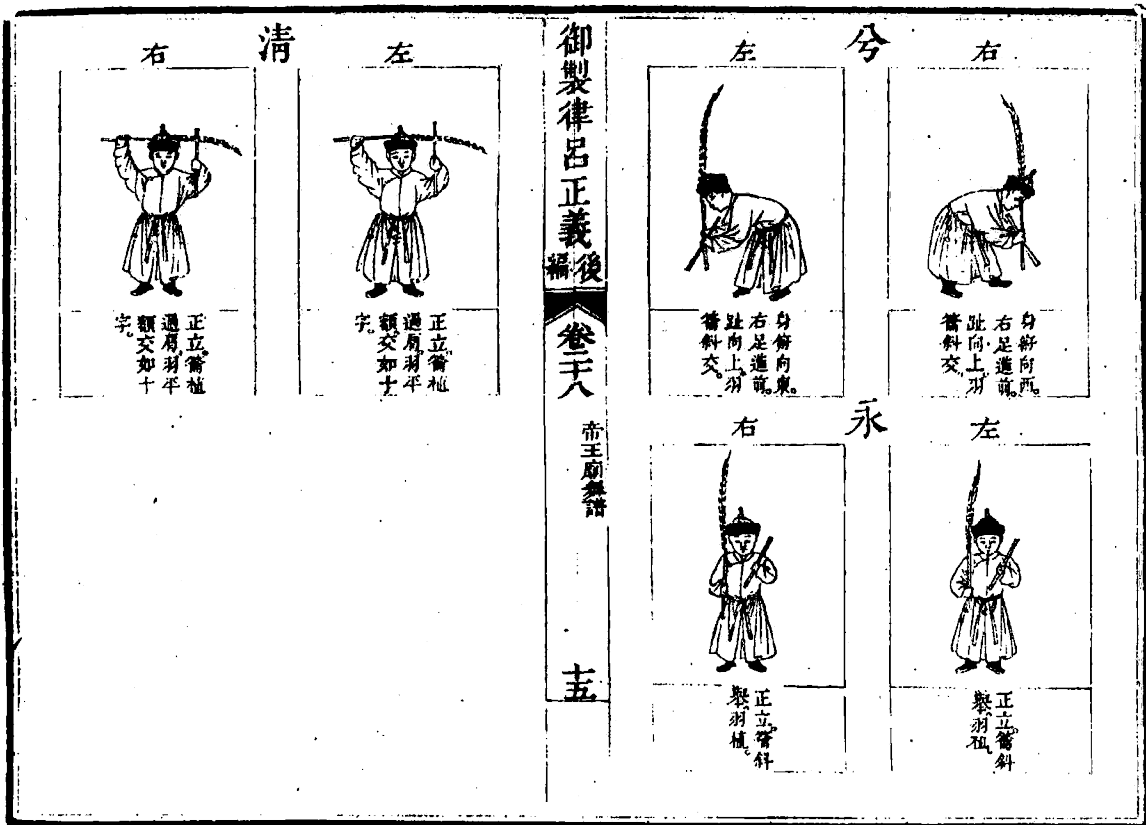 兮
右
身俯向西。
右足進前。
趾向上。羽
籥斜交。
左
身俯向東。
右足進前。
趾向上。羽
籥斜交。
永
左
正立。籥斜
舉。羽植。
右
正立。籥斜
舉。羽植。
御製律呂正義後編
卷二十八
帝王廟舞譜
十五
清
左
正立。籥植
過肩。羽平
額。交如十
字。
右
正立。籥植
過肩。羽平
額交如十
字。